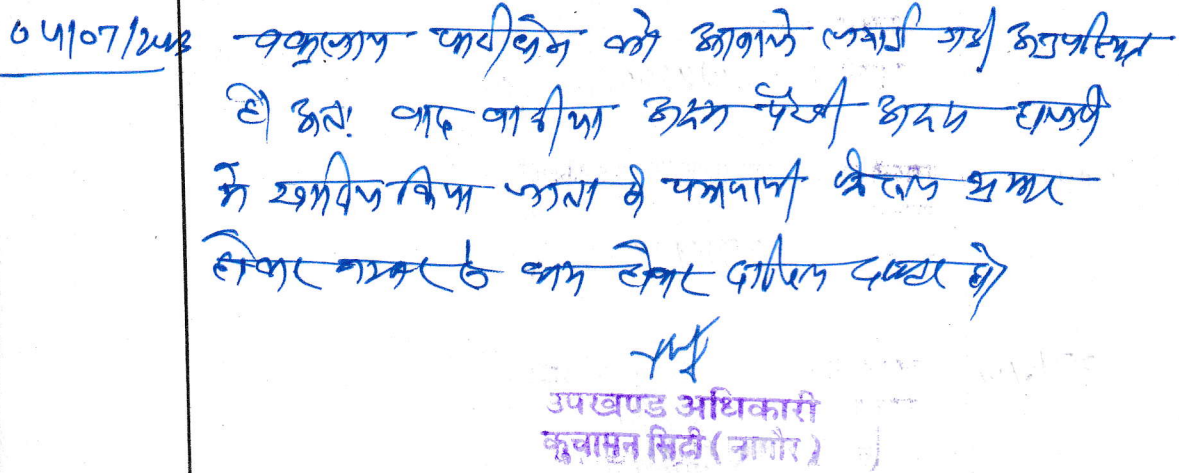 04/07/2023 वकुलाय फरीकेन को आवाजे लगवाई गई अनुपस्थित
है। अतः वाद वादीया अदम पैरवी अदम हाजरी
मे खारिज किया जाता है पत्रावली फैसल शुमार
होकर नम्बर से कम होकर दाखिल दफ्तर हो।
उपखण्ड अधिकारी
कुचामन सिटी ( नागौर )